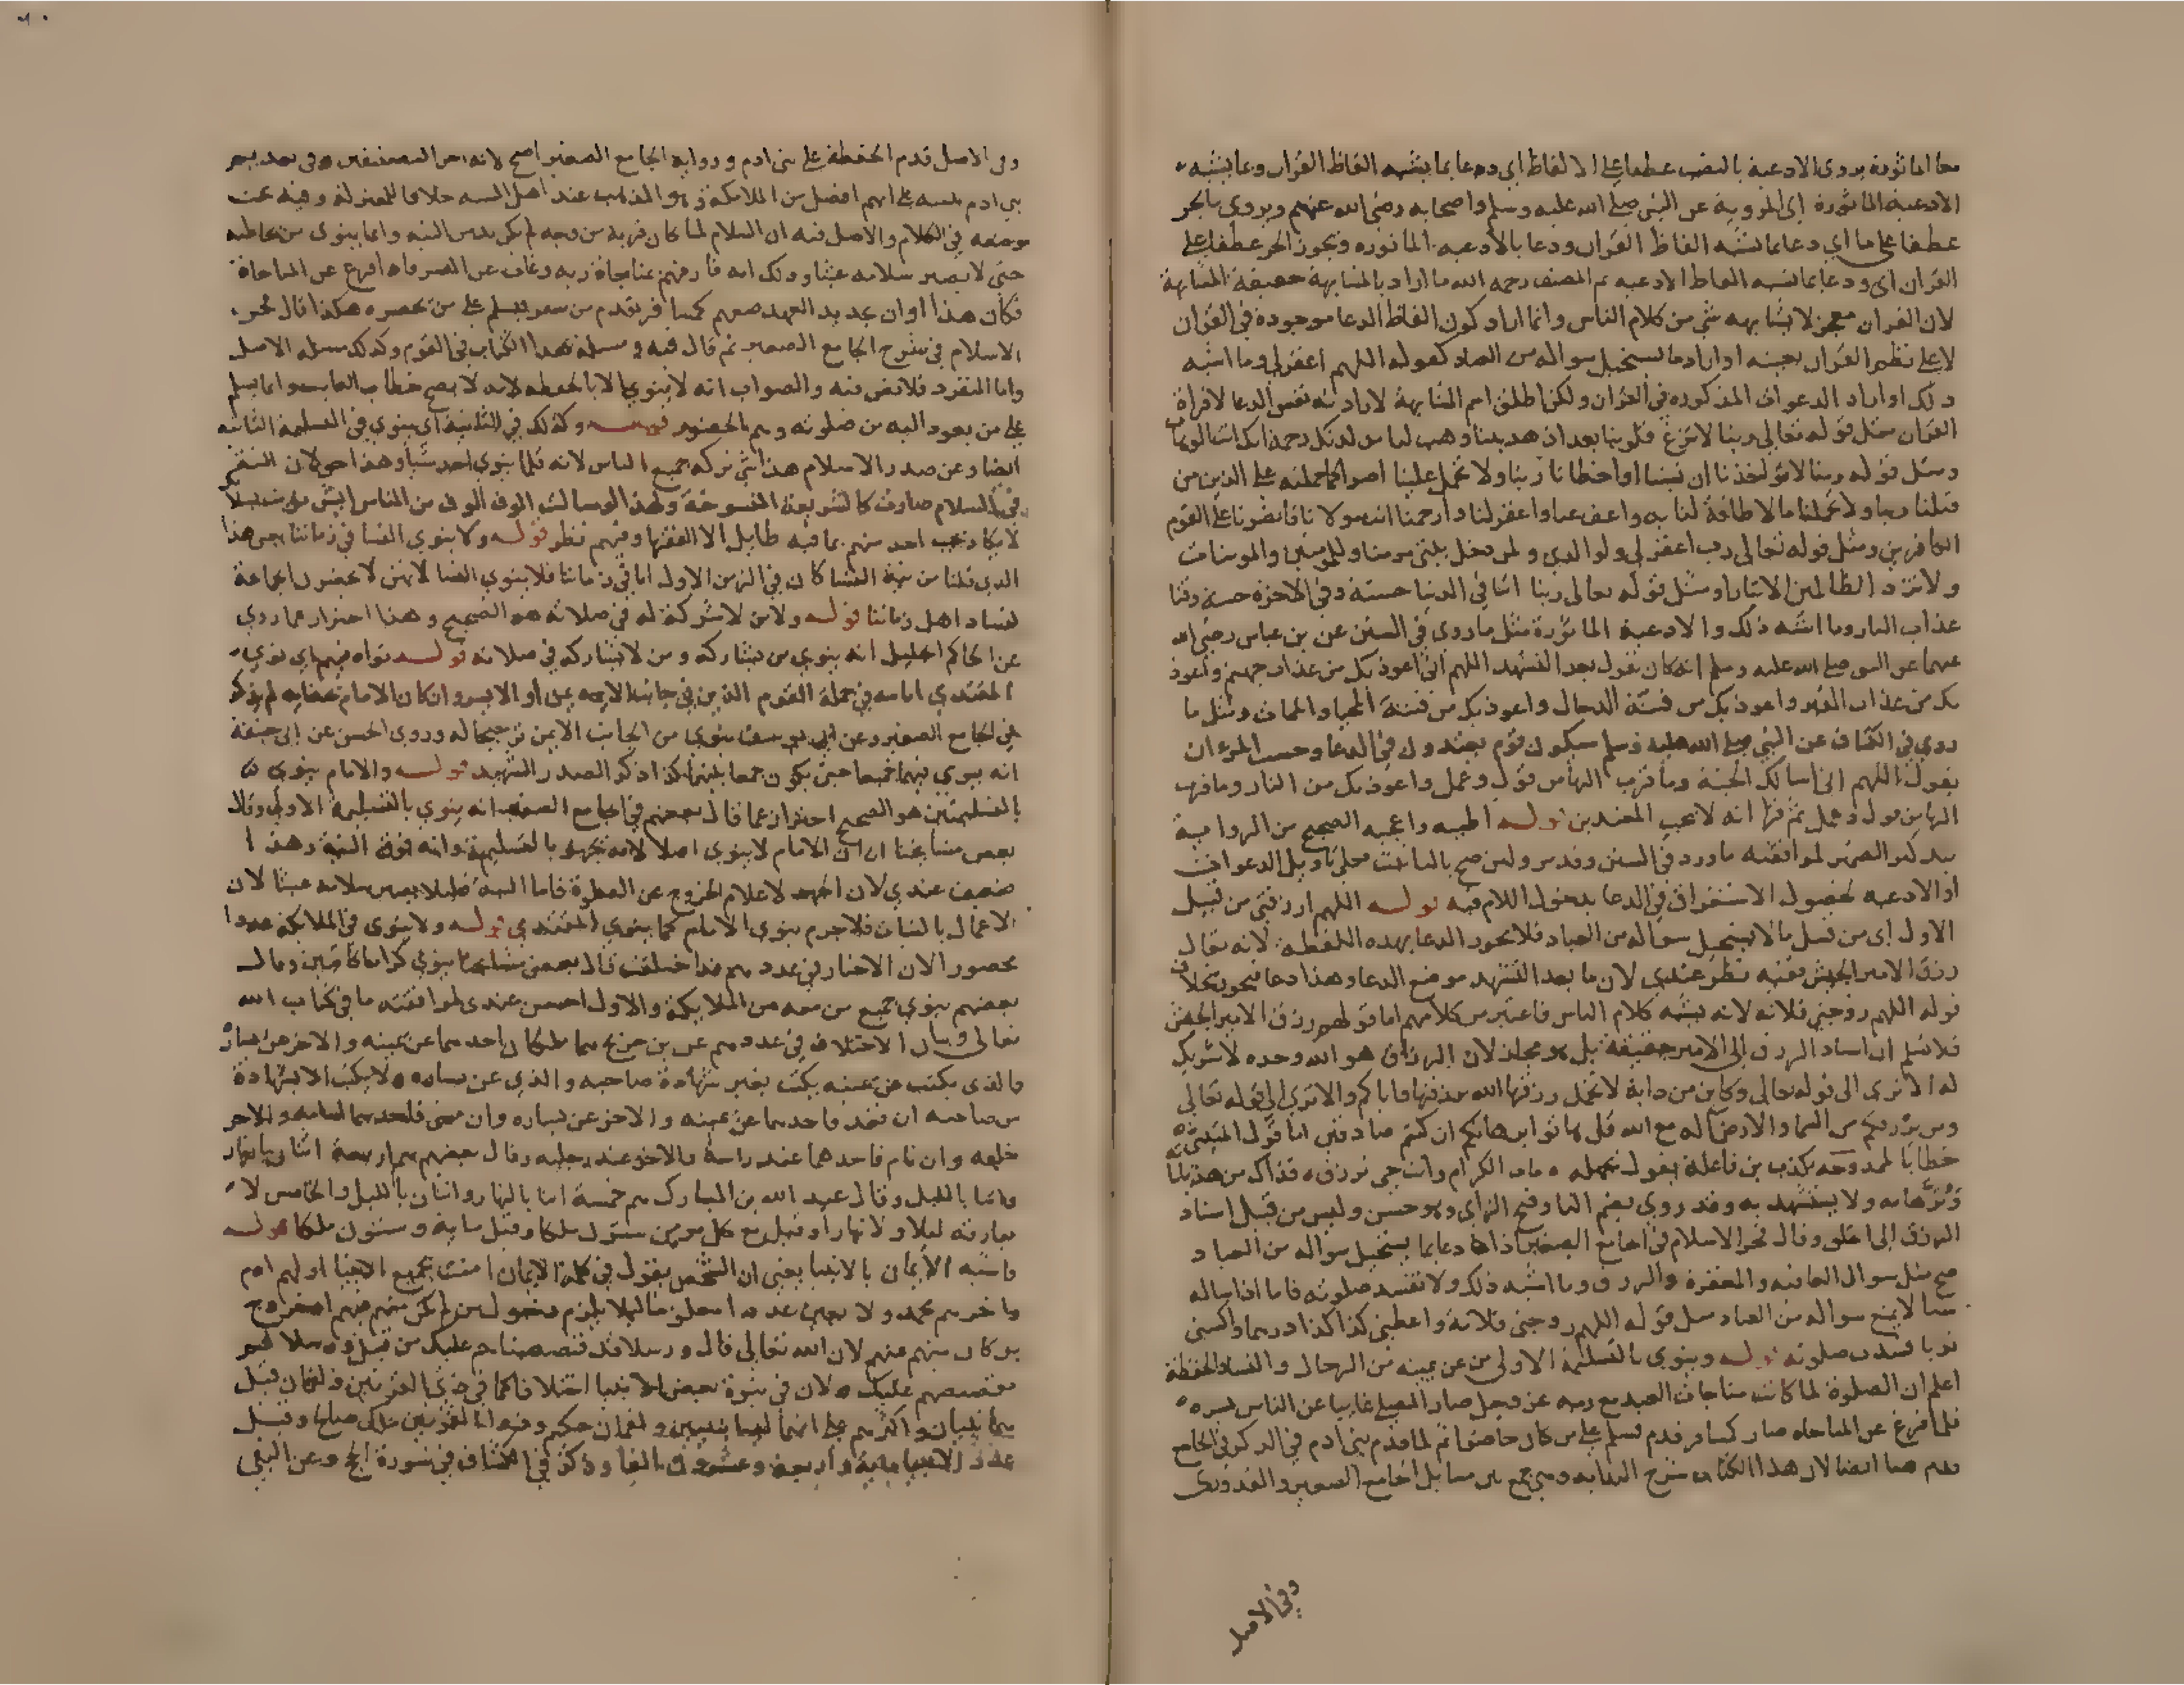 معا الماثورة يروى الادعية بالنصب عطفا على الالفاظ اي ودعا بما يشبه الفاظ القران وبما يشبه
الادعية الماثورة اى المروية عن النبي صلى الله عليه وسلم واصحابه رضي الله عنهم ويروى بالجر
عطفا على ما اي دعا بما يشبه الفاظ القران ودعا بالادعيه الماثوره ويجوز الجر عطفا على
القران اى ودعا بما يشبه الفاظ الادعيه ثم المصنف رحمه الله ما اراد بالمشابهة حقيقة المشابهة
لان القران معجز لا يشابهه شي من كلام الناس وانما اراد كون الفاظ الدعا موجودة في القران
لا على نظم القران بعينه او اراد ما يستحيل سواله من العباد كقوله اللهم اغفر لي وما اشبه
ذلك او اراد الدعوات المذكوره في القران ولكن اطلق اسم المشابهة لارادته نفس الدعا لا قراة
القران مثل قوله تعالى ربنا لا تزغ قلوبنا بعد اذ هديتنا وهب لنا من لدنك رحمة انك انت الوهاب
ومثل قوله ربنا لا تؤاخذنا ان نسينا او اخطانا ربنا ولا تحمل علينا اصرا كما حملته على الذين من
قبلنا ربنا ولا تحملنا ما لا طاقة لنا به واعف عنا واغفر لنا وارحمنا انت مولانا فانصرنا على القوم
الكافرين ومثل قوله تعالى رب اغفر لي ولوالدي ولمن دخل بيتي مومنا وللمومنين والمومنات
ولا تزد الظالمين الا تبارا ومثل قوله تعالى ربنا اتنا في الدنيا حسنة وفي الاخرة حسنة وقنا
عذاب النار وما اشبه ذلك والادعية الماثورة مثل ما روي في السنن عن بن عباس رضي الله
عنهما عن النبي صلى الله عليه وسلم انه كان يقول بعد التشهد اللهم اني اعوذ بك من عذاب جهنم واعوذ
بك من عذاب القبر واعوذ بك من فتنة الدجال واعوذ بك من فتنة المحيا والممات ومثل ما
روي في الكشاف عن النبي صلى الله عليه وسلم سيكون قوم يعتدون في الدعا وحسب المرء ان
يقول اللهم اني اسالك الجنة وما قرب اليها من قول وعمل واعوذ بك من النار وما قرب
اليها من قول وعمل ثم قرا انه لا يحب المعتدين قوله اطيبه واعجبه الصحيح من الرواية
بتذكير الضمير لموافقته ما ورد في السنن وقد مر ولئن صح بالتانيث فعلى تاويل الدعوات
او الادعيه لحصول الاستغراق في الدعا بدخول اللام فيه قوله اللهم ارزقني من قبيل
الاول اى من قبيل ما لا يستحيل سواله من العباد فلا يجوز الدعا بهذه اللفظة لانه يقال
رزق الامير الجيش ففيه نظر عندي لان ما بعد التشهد موضع الدعا وهذا دعا فيجوز بخلاف
قوله اللهم زوجني فلانه لانه يشبه كلام الناس فاعتبر من كلامهم اما قولهم رزق الامير الجيش
فلا نسلم ان اسناد الرزق الى الامير حقيقة بل هو مجاز لان الرزاق هو الله وحده لا شريك
له الا ترى الى قوله تعالى وكاين من دابة لا تحمل رزقها الله يرزقها واياكم والا ترى الى قوله تعالى
ومن يرزقكم من السما والارض اله مع الله قل هاتوا برهانكم ان كنتم صادقين اما قول المتنبي
خطابا لممدوحه بكذب بن فاعلة يقول بجهله مات الكرام وانت حي ترزق فذاك من هذيانا
وترهاته ولا يستشهد به وقد روي بضم التا وفتح الزاي وهو حسن وليس من قبيل اسناد
الرزق الى الخلق وقال فخر الاسلام في الجامع الصغير اذا دعا بما يستحيل سواله من العباد
صح مثل سوال العافيه والمغفرة والرزق وما اشبه ذلك ولا تفسد صلوته فاما اذا ساله
مما لا يمنع سواله من العباد مثل قوله اللهم زوجني فلانة واعطني كذا كذا درهما واكسني
ثوبا فسدت صلوته قوله وينوي بالتسليمة الاولى من عن يمينه من الرجال والنساء والحفظة
اعلم ان الصلوة لما كانت مناجات العبد مع ربه عز وجل صار المصلي غايبا عن الناس بسره
فلما فرغ عن المناجاه صار كمسافر قدم فسلم على من كان حاضرا ثم لما قدم بني ادم في الذكر في الجامع
قدم هنا ايضا لان هذا الكتاب شرح البدايه وهي جمع بين مسايل الجامع الصغير والقدوري
وفي الاصل
وفي الاصل قدم الحفظة على بني ادم ورواية الجامع الصغير اصح لانه اخر التصنيفين وفي تقديم
بني ادم تنبيه على انهم افضل من الملايكة وهو المذهب عند اهل السنه خلافا للمعتزله وفيه بحث
موضعه في الكلام والاصل فيه ان السلام لما كان قربة من وجه لم يكن بد من النيه وانما ينوي من يخاطبه
حتى لا يصير سلامه عبثا وذلك انه فارقهم بمناجاة ربه وغاب عن البصر فاذا فرغ عن المناجاة
فكان هذا اوان تجديد العهد معهم كمسافر يقدم من سفر يسلم على من يحضره هكذا قال فخر
الاسلام في شرح الجامع الصغير ثم قال فيه ومسلة هذا الكتاب في القوم وكذلك مسلة الاصل
واما المنفرد فلا نص فيه والصواب انه لا ينوي الا بالحفظه لانه لا يصح خطاب الغايب وانما يسلم
على من يعود اليه من صلوته وهم الحضور قوله وكذلك في الثانية اى ينوي في التسليمة الثانيه
ايضا وعن صدر الاسلام هذا شي تركه جميع الناس لانه قلما ينوي احد شيا وهذا حق لان النيه
في السلام صارت كالشريعة المنسوخة ولهذا لو سالت الوف الوف من الناس ايش نويت بسلامك
لا يكاد يجيب احد منهم بما فيه طايل الا الفقها وفيهم نظر قوله ولا ينوي النسا في زماننا يعني هذا
الذي قلنا من نية النسا كان في الزمن الاول اما في زماننا فلا ينوي النسا لانهن لا يحضرن الجماعة
لفساد اهل زماننا قوله ولا من لا شركة له في صلاته هو الصحيح وهذا احتراز عما روي
عن الحاكم الجليل انه ينوي من يشاركه ومن لا يشاركه في صلاته قوله نواه فيهم اي نوي
المقتدي امامه في جملة القوم الذين في جانبه الايمن او الايسر وان كان الامام بحذايه لم يذكر
في الجامع الصغير وعن ابي يوسف ينوي من الجانب الايمن ترجيحا له وروي الحسن عن ابى حنيفة
انه ينوي فيهما جميعا حتى يكون جمعا بينهما كذا ذكر الصدر الشهيد قوله والامام ينوي
بالتسليمتين هو الصحيح احتراز عما قال بعضهم في الجامع الصغير انه ينوي بالتسليمة الاولى وقال
بعض مشايخنا ان الامام لا ينوي اصلا لانه يجهر بالتسليمة وانه فوق النية وهذا
ضعيف عندي لان الجهر لاعلام الخروج عن الصلوة فاما النية فليلا يصير سلامه عبثا لان
الاعمال بالنيات فلا جرم ينوي الامام كما ينوي المقتدي قوله ولا ينوي في الملايكة عددا
محصورا لان الاخبار في عددهم قد اختلفت قال بعض مشايخنا ينوي كراما كاتبين وقال
بعضهم ينوي جميع من معه من الملايكة والاول احسن عندي لموافقته ما في كتاب الله
تعالى وبيان الاختلاف في عددهم عن بن جريج هما ملكان احدهما عن يمينه والاخر عن يساره
فالذى يكتب عن يمينه يكتب بغير شهادة صاحبه والذي عن يساره لا يكتب الا بشهادة
من صاحبه ان قعد فاحدهما عن يمينه والاخر عن يساره وان مشى فاحدهما امامه والاخر
خلفه وان نام فاحدهما عند راسه والاخر عند رجليه وقال بعضهم هم اربعة اثنان بالنهار
واثنا بالليل وقال عبد الله بن المبارك هم خمسة اثنا بالنهار واثنان بالليل والخامس لا
يفارقه ليلا ولا نهارا وقيل مع كل مومن ستون ملكا وقيل ماية وستون ملكا قوله
فاشبه الايمان بالانبيا يعني ان الشخص يقول في كلمة الايمان امنت بجميع الانبيا اولهم ادم
واخرهم محمد ولا يعين عددا معلوما ليلا يلزم دخول من لم يكن منهم فيهم او خروج
من كان منهم عنهم لان الله تعالى قال ورسلا قد قصصناهم عليك من قبل ورسلا لم
نقصصهم عليك ولان في نبوة بعض الانبيا اختلافا كما في ذي القرنين ولقمان قيل
هما نبيان واكثرهم على انهما ليسا نبيين ولقمان حكيم وذو القرنين ملك صالح وقيل
عدد الانبيا ماية واربعة وعشرون الفا وذكر في الكشاف في سورة الحج وعن النبي